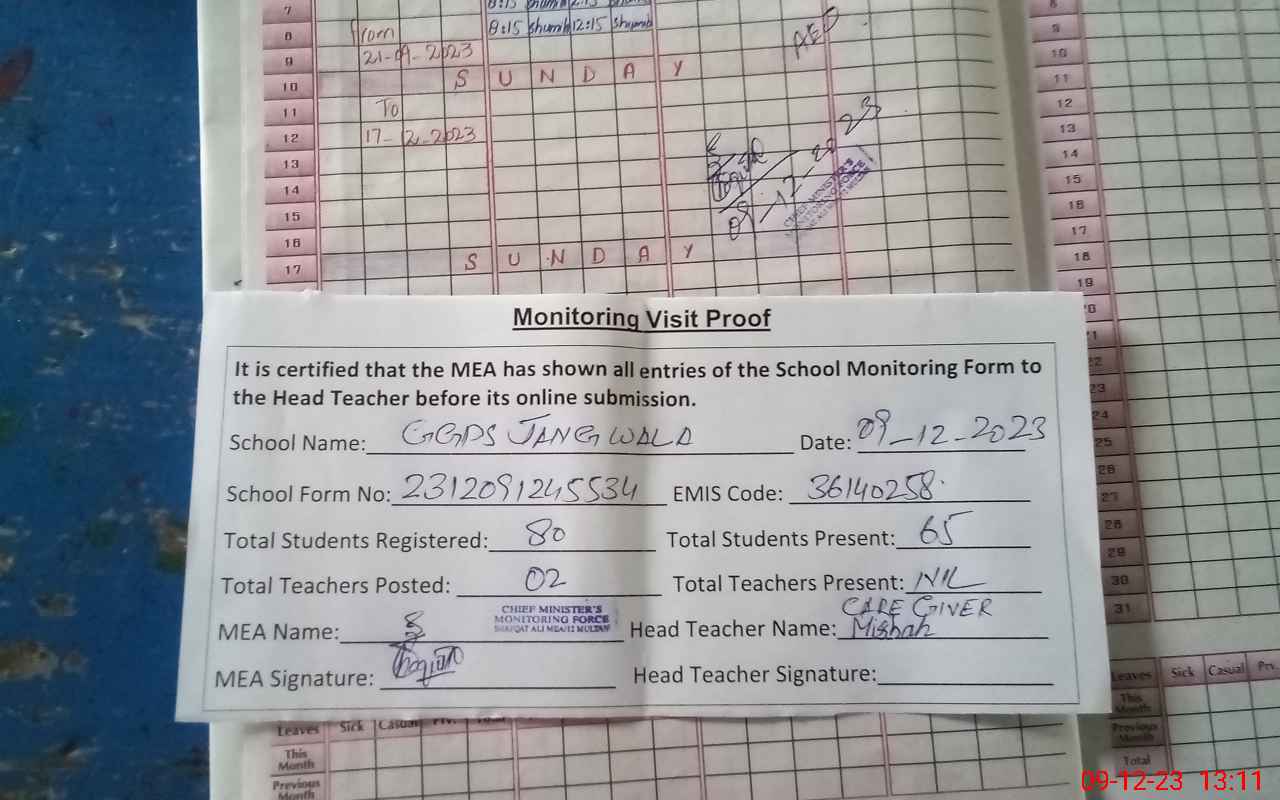 7 8:15 12:15
8 from 8:15 12:15 AEO
9 21-09-2023
10 S U N D A Y
11 To
12 17-12-2023
13
14
15
16
17 S U N D A Y
09-12-2023
CHIEF MINISTER'S
MONITORING FORCE
8
9
10
11
12
13
14
15
16
17
18
19
20
21
22
23
24
25
26
27
28
29
30
31
Monitoring Visit Proof
It is certified that the MEA has shown all entries of the School Monitoring Form to
the Head Teacher before its online submission.
School Name: GGPS JANGWALA Date: 09-12-2023
School Form No: 2312091245534 EMIS Code: 36140258
Total Students Registered: 80 Total Students Present: 65
Total Teachers Posted: 02 Total Teachers Present: NIL
CARE GIVER
MEA Name: CHIEF MINISTER'S MONITORING FORCE SHAFQAT ALI MEA/12 MULTAN Head Teacher Name: Misbah
MEA Signature: Head Teacher Signature:
Leaves Sick Casual Prv. Total
This Month
Previous Month
Leaves Sick Casual Prv.
This Month
Previous Month
Total
09-12-23 13:11